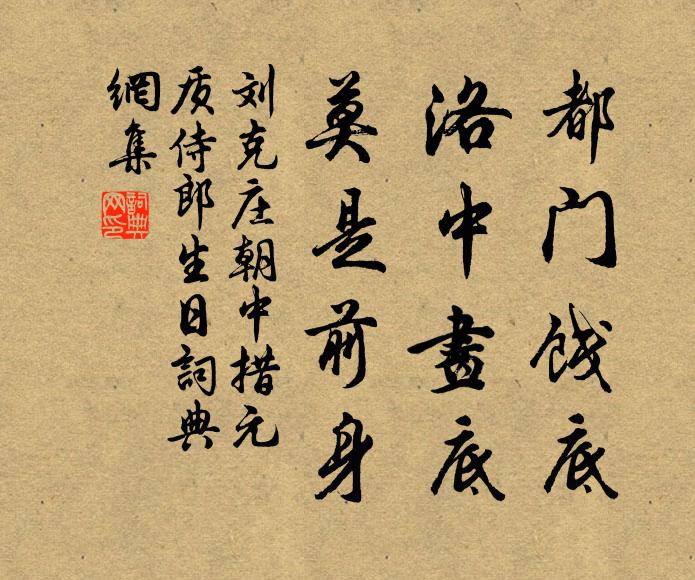 都门餞底
洛中畫底
莫是前身
刘克庄朝中措元
质侍郎生日詞典
網集
詞典网印